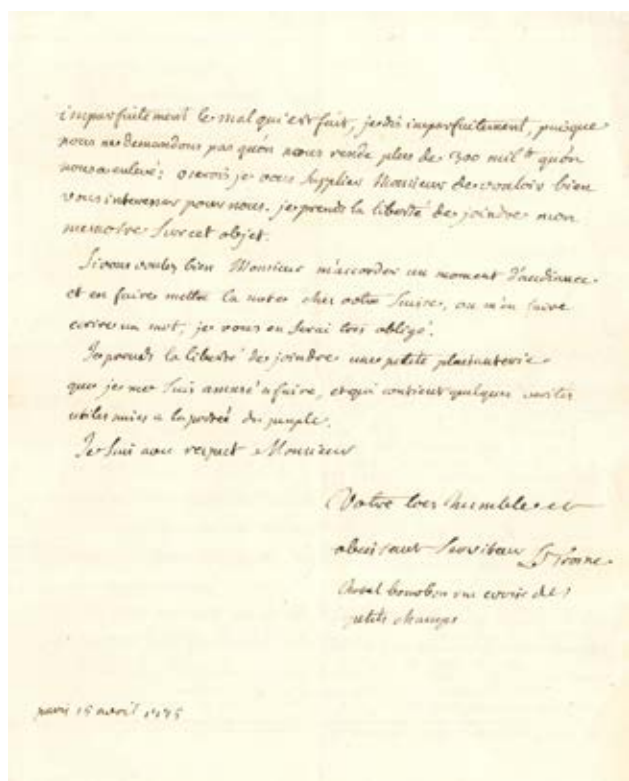 imparfaitement le mal qui est fait, je dis imparfaitement, puisque
nous ne demandons pas qu'on nous rende plus de 300 mil lt qu'on
nous a enlevé; oserois je vous supplier Monsieur de vouloir bien
vous interesser pour nous. je prends la liberté de joindre mon
memoire sur cet objet.
Si vous voulez bien Monsieur m'accorder un moment d'audiance
et en faire mettre la note chez votre suisse, ou m'en faire
ecrire un mot, je vous en serai tres obligé.
Je prends la liberté de joindre une petite plaisanterie
que je me suis amusé a faire, et qui contient quelques verités
utiles mises a la portée du peuple.
Je suis avec respect Monsieur
Votre tres humble et
obeissant serviteur Le Trosne
hotel bourbon rue croix des
petits champs
paris 15 avril 1775